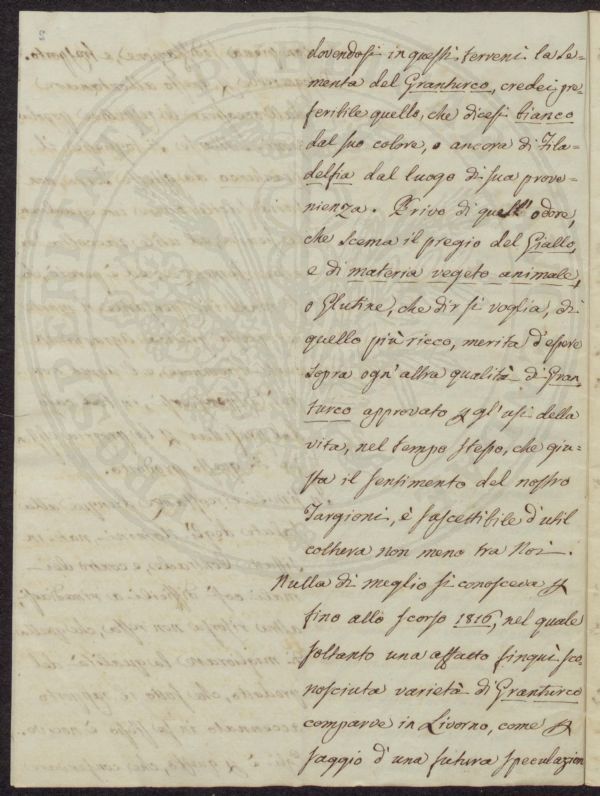 2
dovendosi in questi terreni la se=
menta del Granturco, credei pre=
feribile quello, che dicesi bianco
dal suo colore, o ancora di Fila=
delfia dal luogo di sua prove=
nienza. Privo di quell'odore,
che scema il pregio del Giallo,
e di materia vegeto animale,
o Glutine, che dir si voglia, di
quello più ricco, merita d'essere
sopra ogn'altra qualità di Gran
turco approvato p gl'usi della
vita, nel tempo stesso, che giu=
sta il sentimento del nostro
Targioni, è suscettibile d'util
coltura non meno tra Noi.
Nulla di meglio si conosceva p
fino allo scorso 1816, nel quale
soltanto una affatto finquì sco
nosciuta varietà di Granturco
comparve in Livorno, come p
saggio d'una futura speculazion